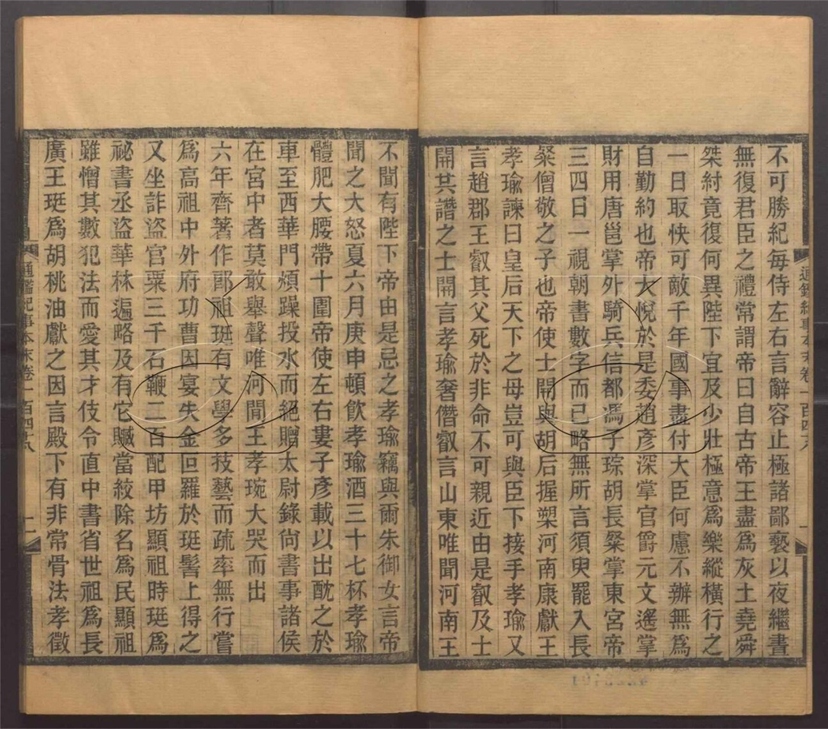 不可勝紀每侍左右言辭容止極諸鄙褻以夜繼晝
無復君臣之禮常謂帝曰自古帝王盡爲灰土堯舜
桀紂竟復何異陛下宜及少壯極意爲樂縱橫行之
一日取快可敵千年國事盡付大臣何慮不辦無爲
自勤約也帝大悅於是委趙彥深掌官爵元文遙掌
財用唐邕掌外騎兵信都馮子琮胡長粲掌東宮帝
三四日一視朝書數字而已略無所言須臾罷入長
粲僧敬之子也帝使士開與胡后握槊河南康獻王
孝瑜諫曰皇后天下之母豈可與臣下接手孝瑜又
言趙郡王叡其父死於非命不可親近由是叡及士
開共譖之士開言孝瑜奢僭叡言山東唯聞河南王
不聞有陛下帝由是忌之孝瑜竊與爾朱御女言帝
聞之大怒夏六月庚申頓飮孝瑜酒三十七杯孝瑜
體肥大腰帶十圍帝使左右婁子彥載以出酖之於
車至西華門煩躁投水而絕贈太尉錄尙書事諸侯
在宮中者莫敢舉聲唯河間王孝琬大哭而出
六年齊著作郎祖珽有文學多技藝而疏率無行嘗
爲高祖中外府功曹因宴失金叵羅於珽髻上得之
又坐詐盜官粟三千石鞭二百配甲坊顯祖時珽爲
祕書丞盜華林遍略及有它贓當絞除名爲民顯祖
雖憎其數犯法而愛其才伎令直中書省世祖爲長
廣王珽爲胡桃油獻之因言殿下有非常骨法孝徵
通鑑紀事本末卷一百四十八